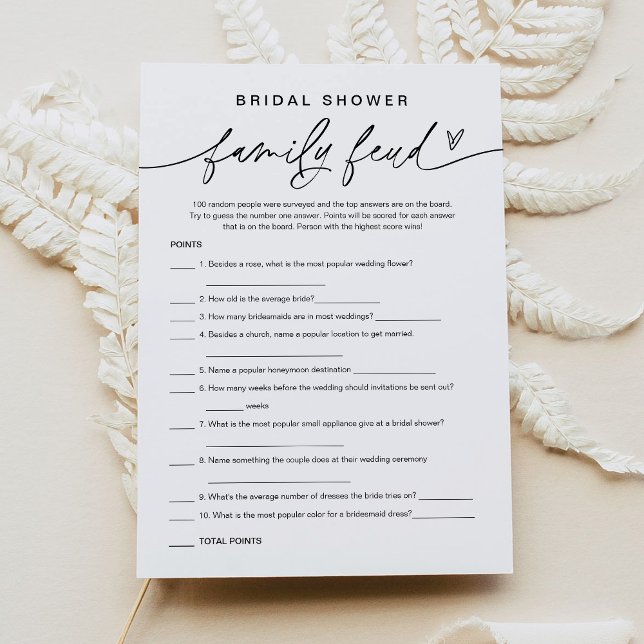 BRIDAL SHOWER
family feud
100 random people were surveyed and the top answers are on the board.
Try to guess the number one answer. Points will be scored for each answer
that is on the board. Person with the highest score wins!
POINTS
_____ 1. Besides a rose, what is the most popular wedding flower?
_________________________
_____ 2. How old is the average bride?______________
_____ 3. How many bridesmaids are in most weddings? ______________
_____ 4. Besides a church, name a popular location to get married.
_____________________________
_____ 5. Name a popular honeymoon destination __________________
_____ 6. How many weeks before the wedding should invitations be sent out?
________ weeks
_____ 7. What is the most popular small appliance give at a bridal shower?
_____________________________
_____ 8. Name something the couple does at their wedding ceremony
______________________________
_____ 9. What's the average number of dresses the bride tries on? ____________
_____ 10. What is the most popular color for a bridesmaid dress?______________
_____ TOTAL POINTS